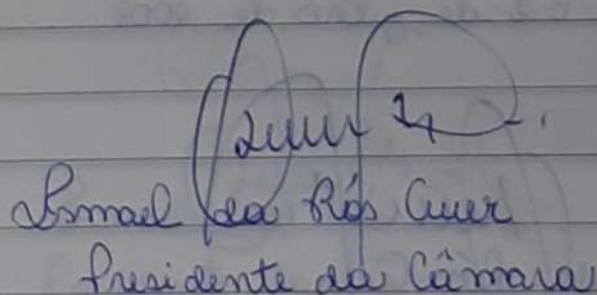 Ismael da Rós Auer
Presidente da Câmara